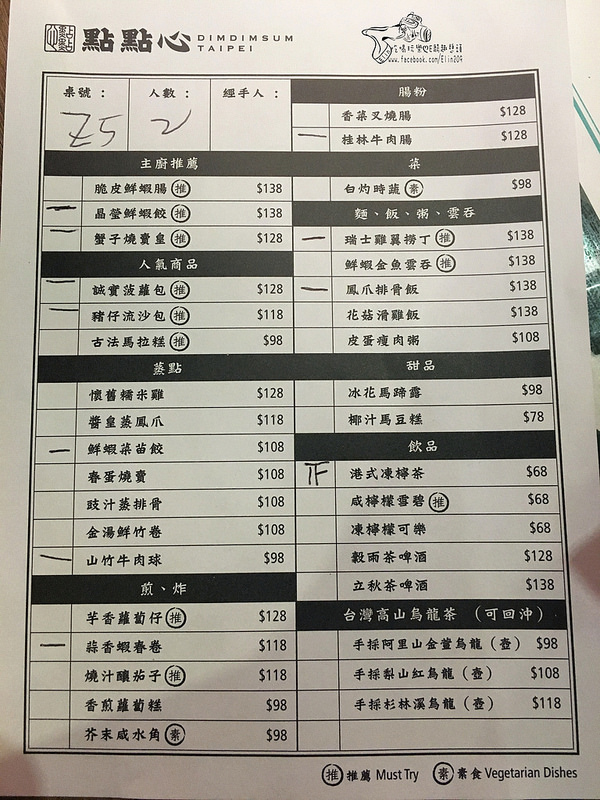 點點心 DIMDIMSUM TAIPEI
www.facebook.com/Elin209
桌號： 人數： 經手人：
Z5 2
主廚推薦
脆皮鮮蝦腸 推 $138
晶瑩鮮蝦餃 推 $138
蟹子燒賣皇 推 $128
人氣商品
誠實菠蘿包 推 $128
豬仔流沙包 推 $118
古法馬拉糕 推 $98
蒸點
懷舊糯米雞 $128
醬皇蒸鳳爪 $118
鮮蝦菜苗餃 $108
春蛋燒賣 $108
豉汁蒸排骨 $108
金湯鮮竹卷 $108
山竹牛肉球 $98
煎、炸
芋香蘿蔔仔 推 $128
蒜香蝦春卷 $118
燒汁釀茄子 推 $118
香煎蘿蔔糕 $98
芥末咸水角 素 $98
腸粉
香菜叉燒腸 $128
桂林牛肉腸 $128
菜
白灼時蔬 素 $98
麵、飯、粥、雲吞
瑞士雞翼撈丁 推 $138
鮮蝦金魚雲吞 推 $138
鳳爪排骨飯 $138
花菇滑雞飯 $138
皮蛋瘦肉粥 $108
甜品
冰花馬蹄露 $98
椰汁馬豆糕 $78
飲品
港式凍檸茶 $68
咸檸檬雪碧 推 $68
凍檸檬可樂 $68
穀雨茶啤酒 $128
立秋茶啤酒 $138
台灣高山烏龍茶 （可回沖）
手採阿里山金萱烏龍（壺） $98
手採梨山紅烏龍（壺） $108
手採杉林溪烏龍（壺） $118
推 推薦 Must Try 素 素食 Vegetarian Dishes